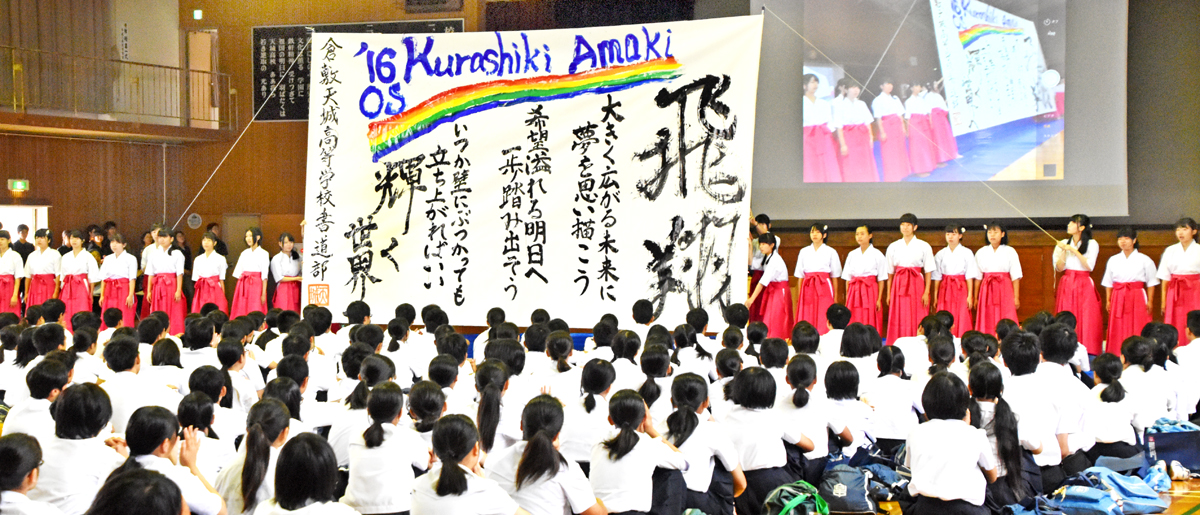 '16 Kurashiki Amaki
OS
飛翔
大きく広がる未来に
夢を思い描こう
希望溢れる明日へ
一歩踏み出そう
いつか壁にぶつかっても
立ち上がればいい
輝く
世界
倉敷天城高等学校書道部